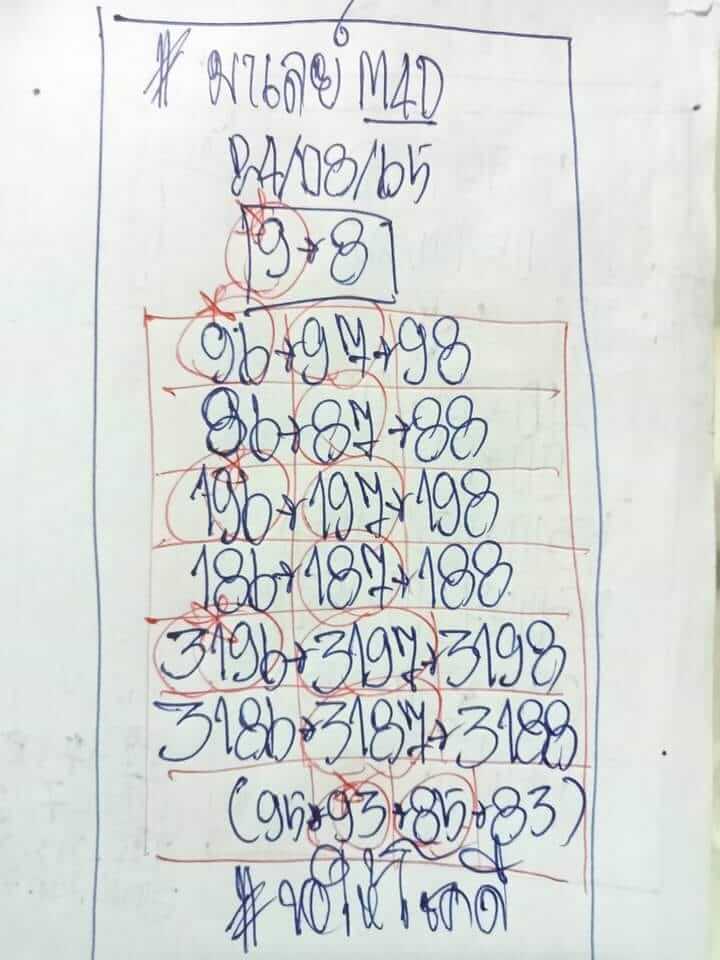 # มาเลย์ M4D
24/08/65
9→8
96→97→98
86→87→88
196→197→198
186→187→188
3196→3197→3198
3186→3187→3188
(95→93→85→83)
#ขอให้โชคดี